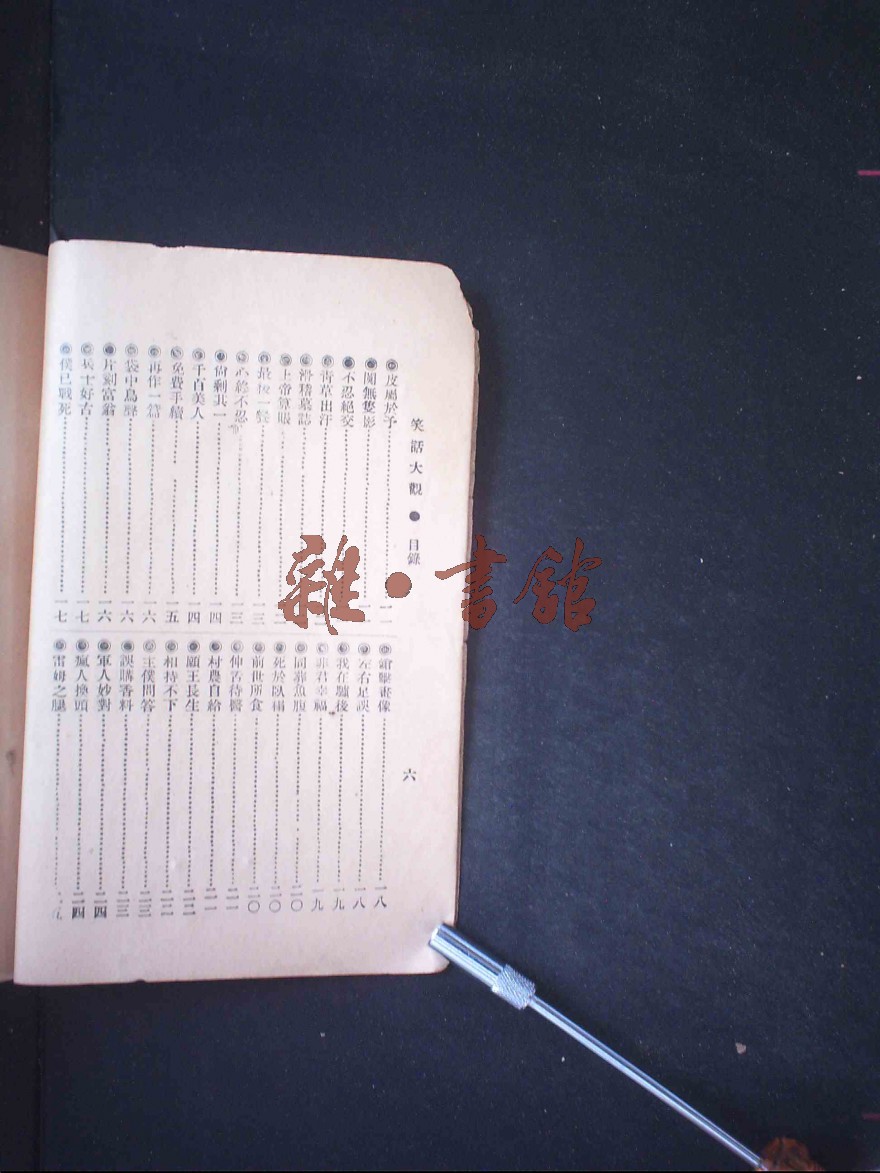 笑話大觀●目錄
六
◎皮屬於予……一一
◎闃無隻影
◎不忍絕交
◎青草出汗
◎滑稽墓誌
◎上帝算賬
◎最後一餐……一三
◎心終不忍……一三
◎尙剩其一……一四
◎千百美人……一四
◎免費手續……一五
◎再作一篇……一六
◎袋中鳥聲……一六
◎片刻富翁……一六
◎兵士好古……一七
◎僕已戰死……一七
◎鎗擊畫像……一八
◎左右足誤……一八
◎我在驢後……一九
◎非君幸福……一九
◎同葬魚腹……二〇
◎死於臥榻……二〇
◎前世所食……二〇
◎伸舌待醫……二一
◎村農自給……二一
◎願王長生……二二
◎相持不下……二二
◎主僕問答……二三
◎誤購香料……二三
◎軍人妙對……二四
◎瘋人換頭……二四
◎雷姆之腿
雜·書館